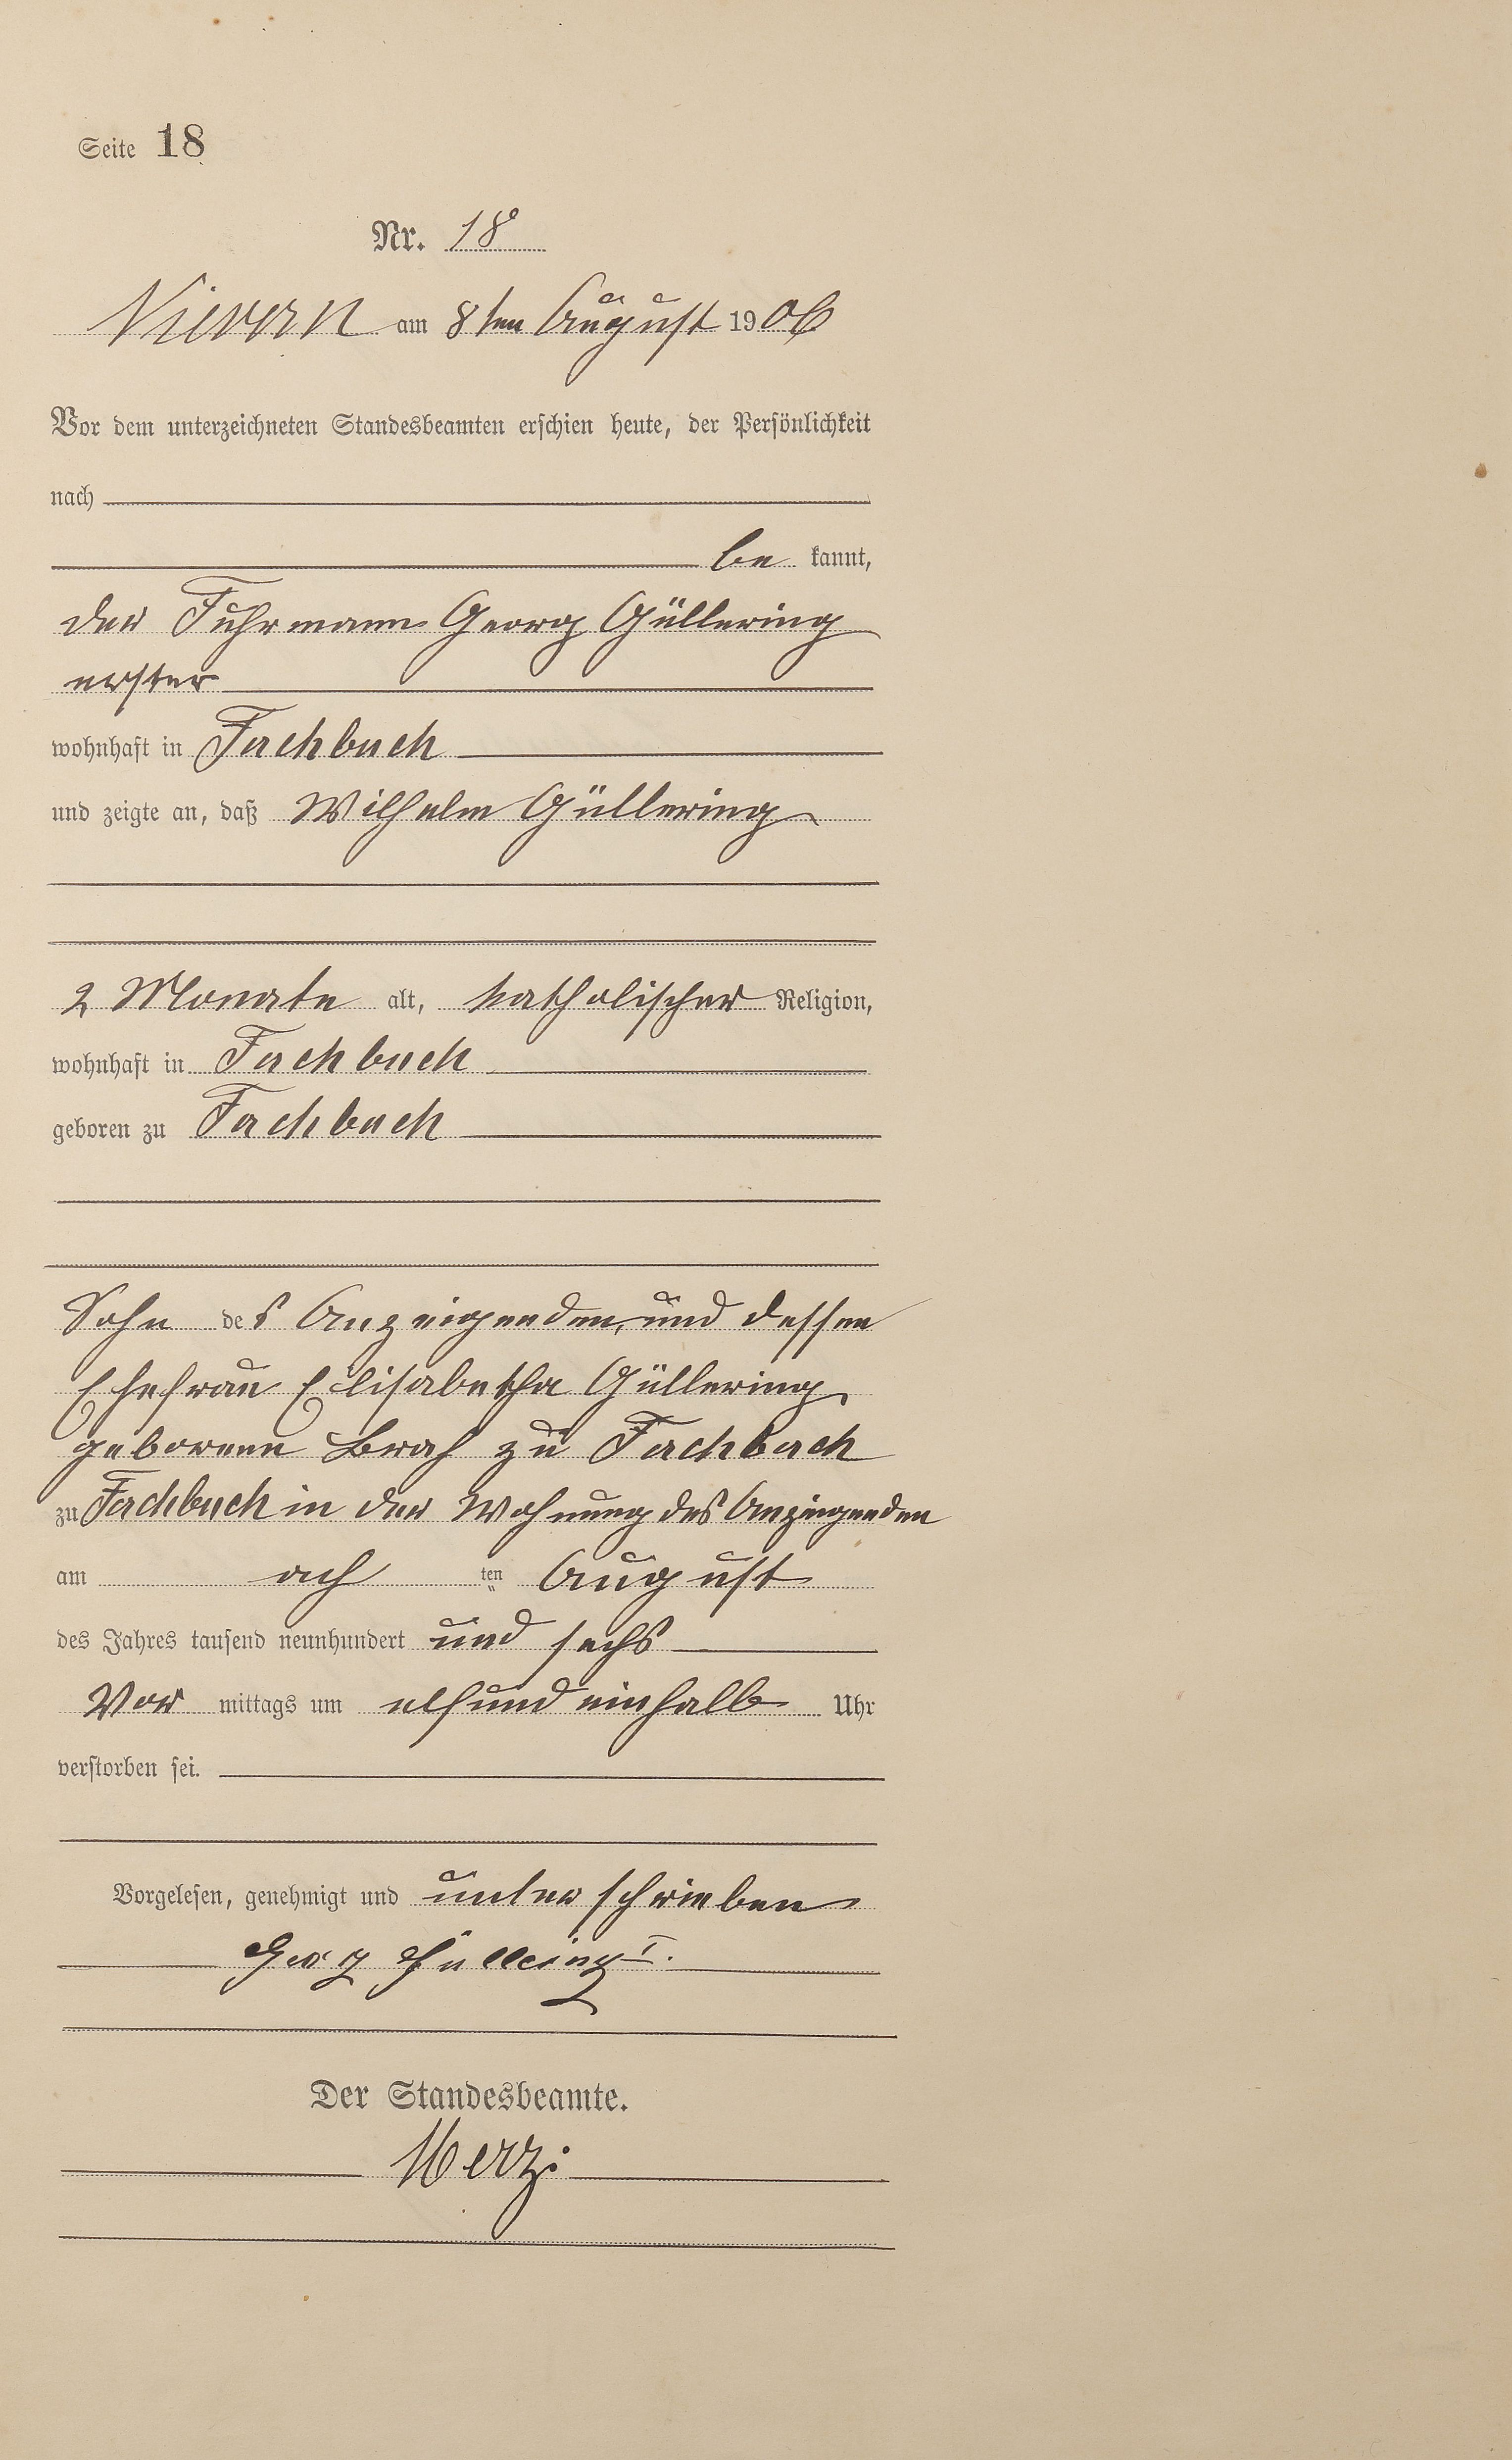 Seite 18
Nr. 18
Nievern am 8ten August 1906
Vor dem unterzeichneten Standesbeamten erschien heute, der Persönlichkeit
nach
be kannt,
der Fuhrmann Georg Güllering
erster
wohnhaft in Fachbach
und zeigte an, daß Wilhelm Güllering
2 Monate alt, katholischer Religion,
wohnhaft in Fachbach
geboren zu Fachbach
Sohn des Anzeigenden, und dessen
Ehefrau Elisabetha Güllering
geborene zu Fachbach
zu Fachbach in der Wohnung des Anzeigenden
am ach ten August
des Jahres tausend neunhundert und sechs
Vor mittags um elfundeinhalb Uhr
verstorben sei.
Vorgelesen, genehmigt und unterschrieben
Georg Güllering I.
Der Standesbeamte.
Merz